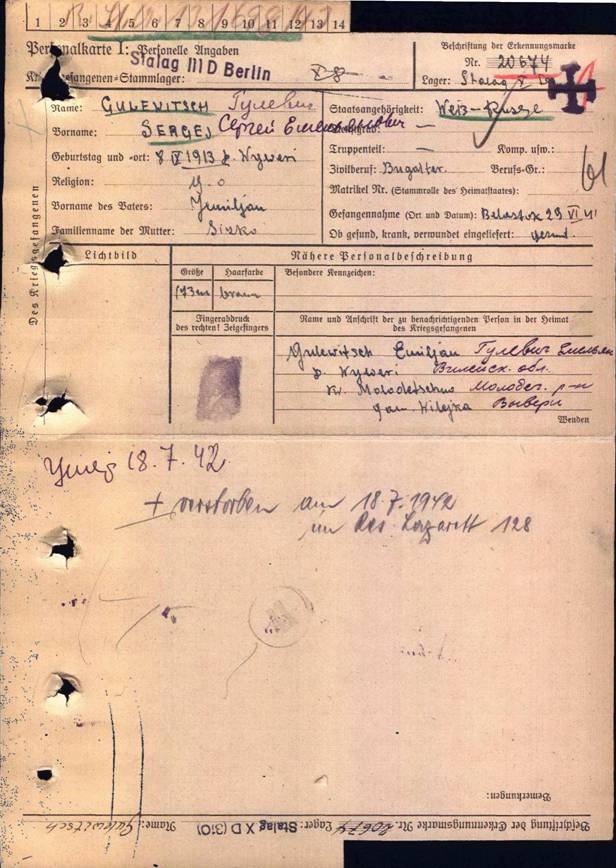 1 2 3 4 5 6 7 8 9 10 11 12 13 14
Personalkarte I: Personelle Angaben
Kriegsgefangenen-Stammlager: Stalag III D Berlin
Beschriftung der Erkennungsmarke
Nr. 20674
Lager: Stalag X D
Des Kriegsgefangenen
Name: GULEWITSCH Гулевич
Vorname: SERGEJ Сергей Емельянович
Geburtstag und -ort: 8 IV 1913 d. Wyweri
Religion:
Vorname des Vaters: Jemiljan
Familienname der Mutter: Sizko
Staatsangehörigkeit: Weiß-Russe
Dienstgrad: —
Truppenteil: — Komp. usw.:
Zivilberuf: Bugalter Berufs-Gr.:
Matrikel Nr. (Stammrolle des Heimatstaates):
Gefangennahme (Ort und Datum): Belostok 29 VI 41
Ob gesund, krank, verwundet eingeliefert: gesund.
Lichtbild
Nähere Personalbeschreibung
Größe Haarfarbe Besondere Kennzeichen:
173 cm braun
Fingerabdruck
des rechten! Zeigefingers
Name und Anschrift der zu benachrichtigenden Person in der Heimat
des Kriegsgefangenen
Gulewitsch Emiljan Гулевич Емельян
d. Wyweri Вилейск. обл.
Kr. Molodetschno Молодеч. р-н
Wilejka Вывери
Wenden
18.7.42
+ verstorben am 18.7.1942
im Res. Lazarett 128
Bemerkungen:
Beschriftung der Erkennungsmarke Nr. 20674 Lager: Stalag X D (310) Name: Gulewitsch